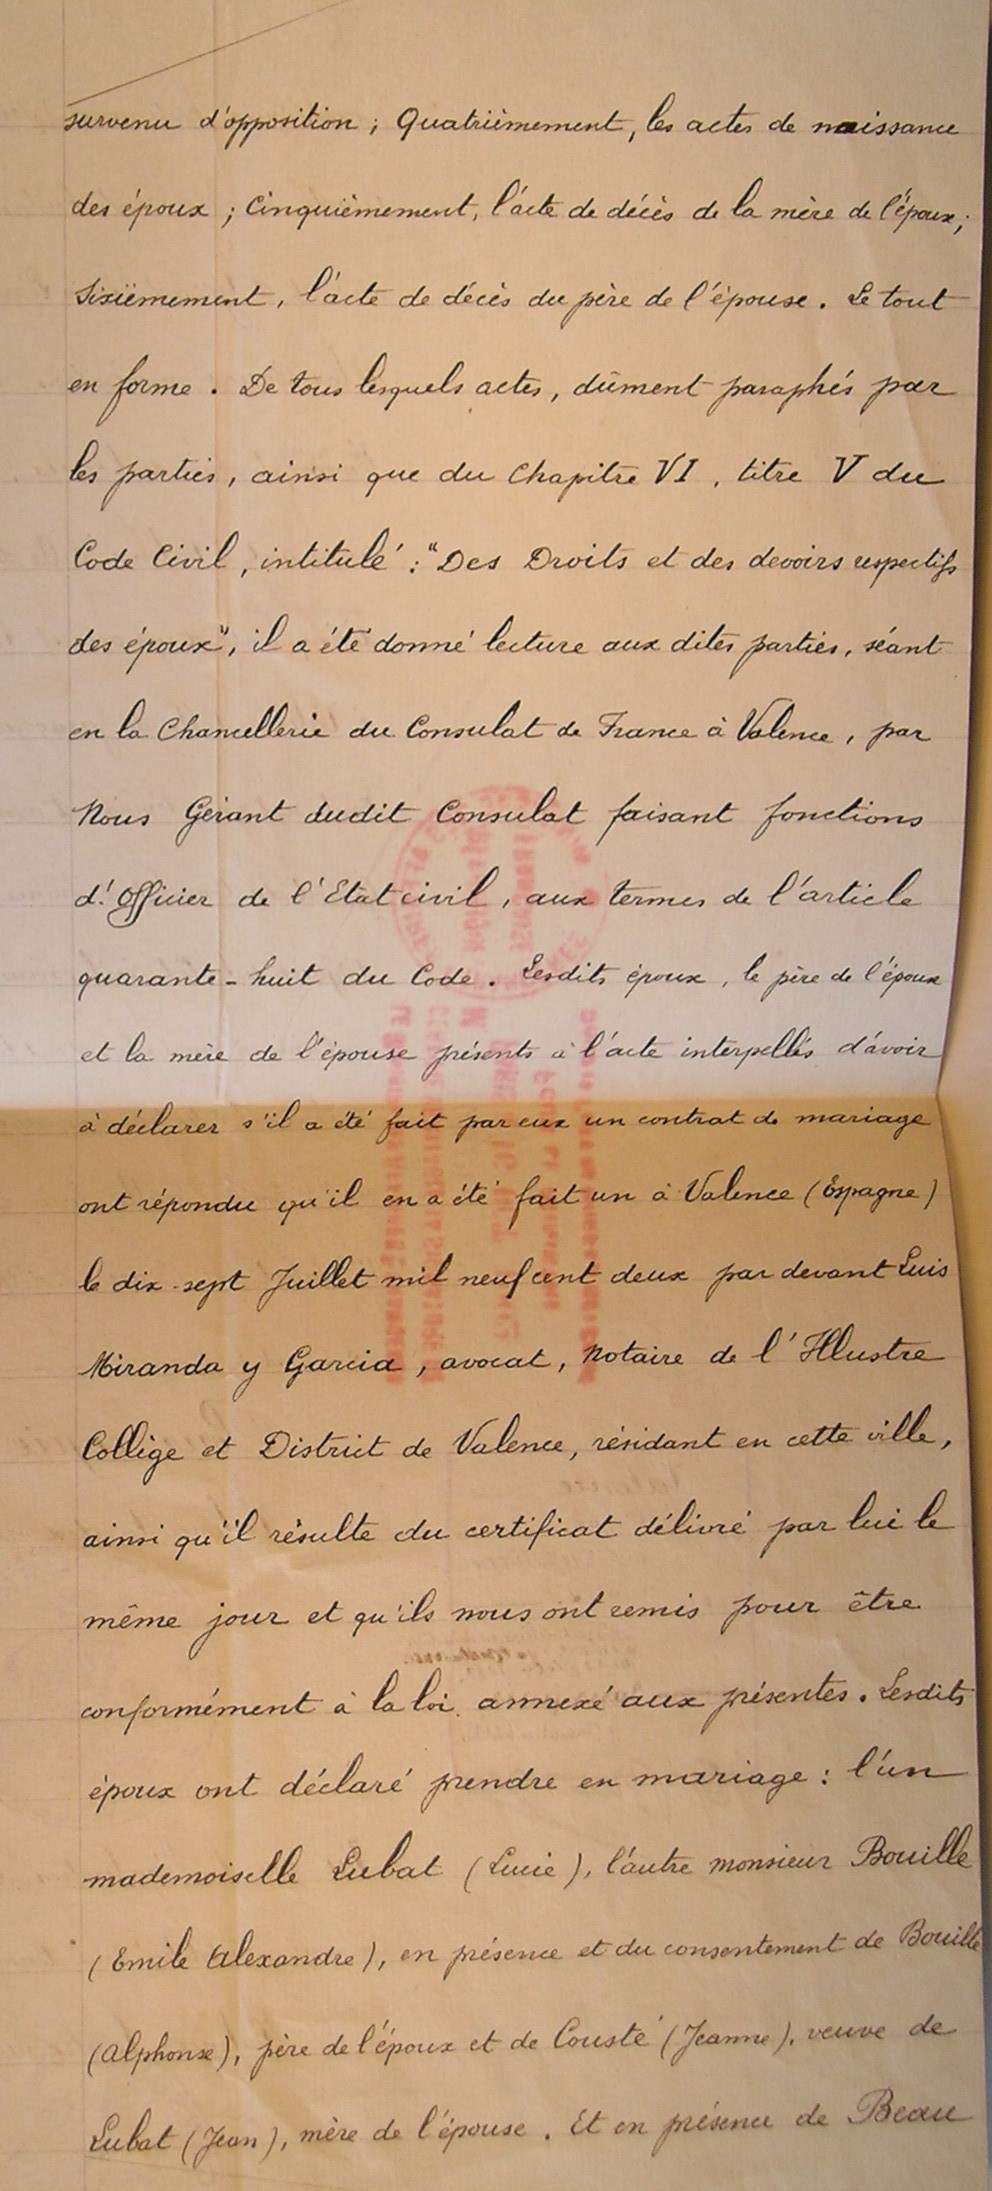 survenu d'opposition ; Quatrièmement, les actes de naissance
des époux ; Cinquièmement, l'acte de décès de la mère de l'époux ;
Sixièmement, l'acte de décès du père de l'épouse. Le tout
en forme. De tous lesquels actes, dûment paraphés par
les parties, ainsi que du Chapitre VI, titre V du
Code Civil, intitulé : "Des Droits et des devoirs respectifs
des époux", il a été donné lecture aux dites parties, séant
en la Chancellerie du Consulat de France à Valence, par
Nous Gérant dudit Consulat faisant fonctions
d'Officier de l'Etat civil, aux termes de l'article
quarante-huit du Code. Lesdits époux, le père de l'époux
et la mère de l'épouse présents à l'acte interpellés d'avoir
à déclarer s'il a été fait par eux un contrat de mariage
ont répondu qu'il en a été fait un à Valence (Espagne)
le dix-sept Juillet mil neuf cent deux par devant Luis
Miranda y Garcia, avocat, Notaire de l'Illustre
Collège et District de Valence, résidant en cette ville,
ainsi qu'il résulte du certificat délivré par lui le
même jour et qu'ils nous ont remis pour être
conformément à la loi annexé aux présentes. Lesdits
époux ont déclaré prendre en mariage : l'un
mademoiselle Lubat (Lucie), l'autre monsieur Bouille
(Emile Alexandre), en présence et du consentement de Bouille
(Alphonse), père de l'époux et de Cousté (Jeanne), veuve de
Lubat (Jean), mère de l'épouse. Et en présence de Beau